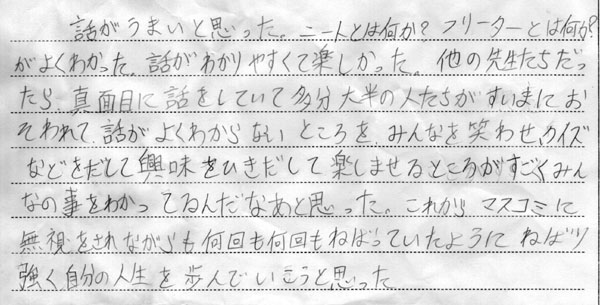 話がうまいと思った。ニートとは何か？フリーターとは何か？
がよくわかった。話がわかりやすくて楽しかった。他の先生たちだっ
たら、真面目に話をしていて多分大半の人たちがすいまにお
そわれて、話がよくわからないところを、みんなを笑わせ、クイズ
などをだして興味をひきだして楽しませるところがすごくみん
なの事をわかってるんだなあと思った。これからマスコミに
無視をされながらも何回も何回もねばっていたようにねばり
強く自分の人生を歩んでいこうと思った